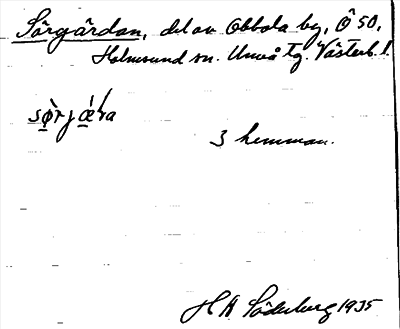 Sörgårdan, del av Obbola by, Ö 50,
Holmsund sn. Umeå tg. Västerb. l.
3 hemman.
H A Söderberg 1935